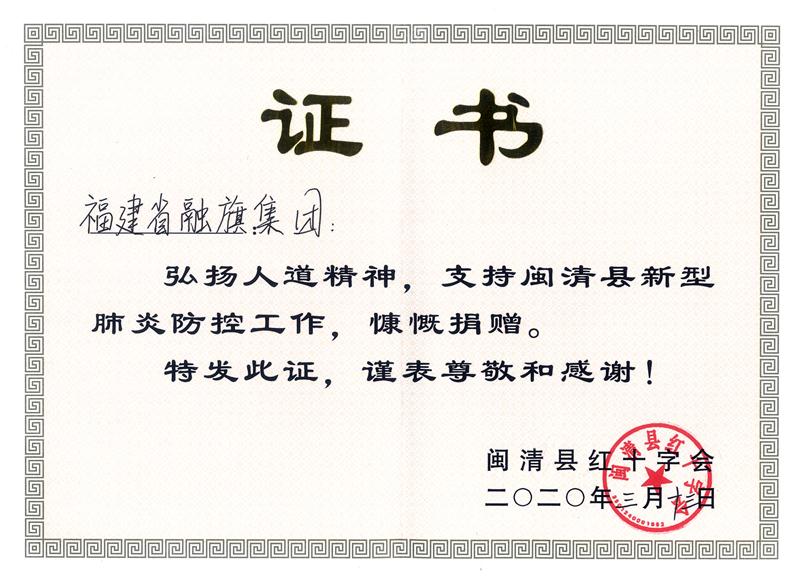 证书
福建省融旗集团：
弘扬人道精神，支持闽清县新型
肺炎防控工作，慷慨捐赠。
特发此证，谨表尊敬和感谢！
闽清县红十字会
二〇二〇年三月十三日
闽清县红十字会